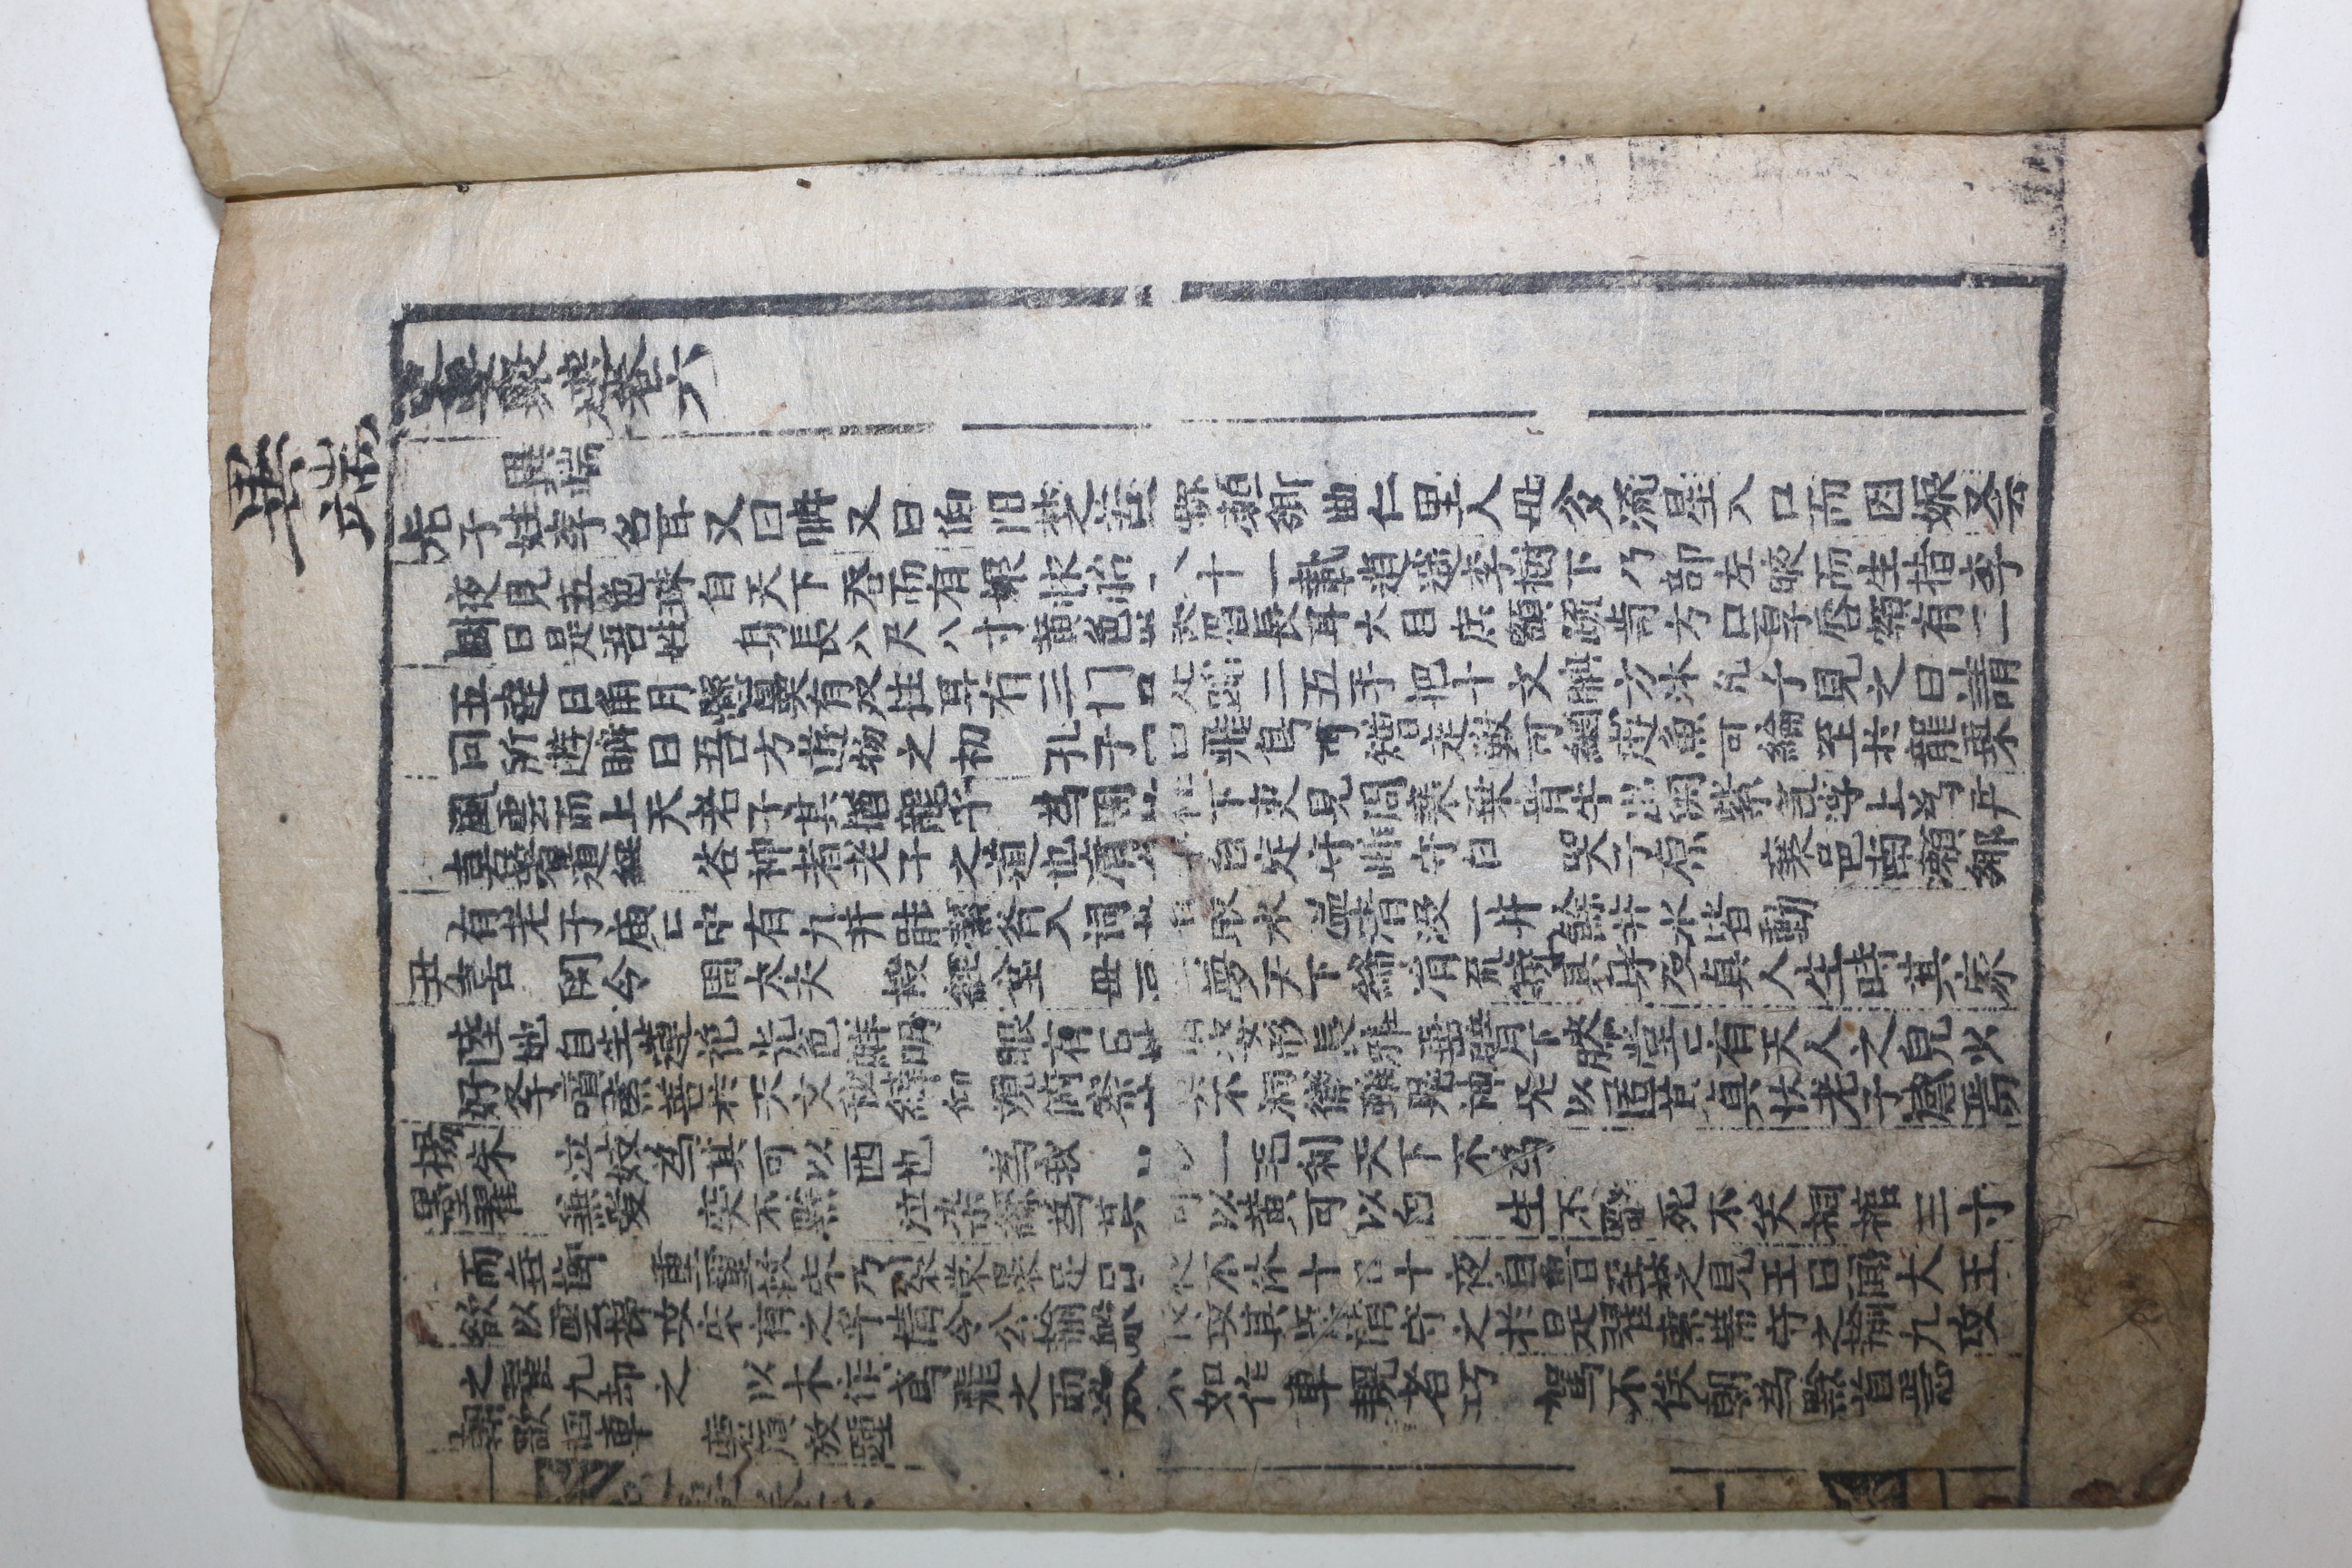 異端
卷六
異端
老子姓李名耳又曰聃又曰伯陽楚苦縣賴鄉曲仁里人母夛流星入口而因娠又云
夜見五色珠自天下呑而有娠怀胎八十一載逍遥李樹下乃部左腋而生指李
國曰是吾姓 身長八尺八寸黄色美眉長耳大目広額疏齒方口厚唇額有二
五達日角月懸鼻有双柱耳有三门足蹈二五手把十文聃方沐孔子見之曰請
問所遊聃曰吾方遊物之初 孔子曰飛鳥可矰走獸可網遊魚可綸至於龍乗
風雲而上天老子其猶龍乎 爲周柱下吏見周衰乗青牛出関紫氣浮上爲尹
喜著道經 谷神者老子之道也 自定守雌守白 哭子原 襄邑南瀬郷
有老子庙匕中有九井能潔斉入祠者取水温清没一井餘井水皆動
尹喜 関令 周大夫 授經堂 母 夢天下絳 流繞其身及真人生時其家
陸地自生蓮花光色鮮明 眼有日 姿形長雅垂臂下膝堂匕有天人之皃少
好李墳索善於天文秘緯仰覌俯察 不洞徹雖鬼神无以匿其真状老子感焉
楊朱 泣岐爲其可以西也 爲我 一毛利天下不爲
墨翟 兼愛 突不黔 泣染絲爲其可以黄可以白 生不歌死不哭桐棺三寸
而無槨 重趼救宋乃裂裳裹足日夜不休十日十夜自魯至楚之見王曰聞大王
欲以雲梯攻宋有之乎 請令公輸般 攻其 請守之於是翟索帯守之輸九攻
之翟九却之 以木作鳶飛之而 不如作車輗者巧 駕不俟朝為黔首
朝歌囬車 摩頂放踵